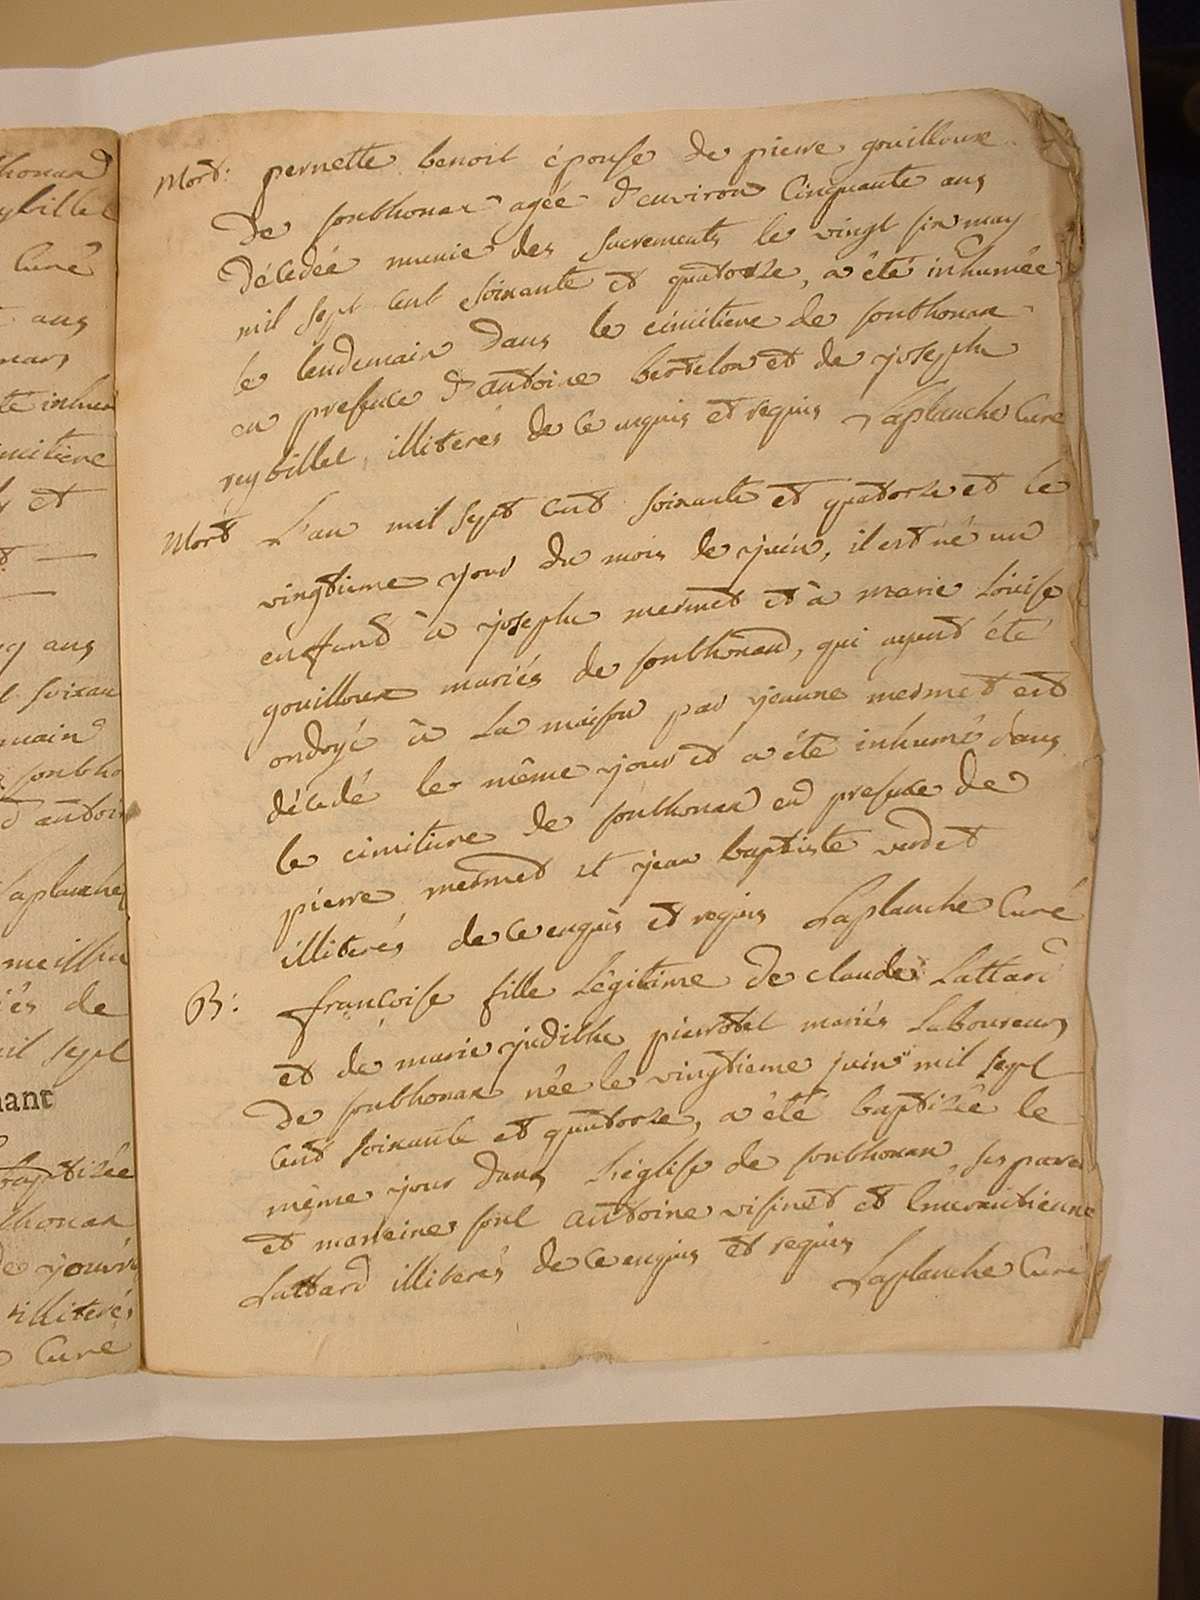 honar
ybillet
Curé
ans
mars
te inhu
imitiere
et
ans
soixan
main
sonbho
antoi
Laplanche
meillu
iés de
il sept
nant
baptisée
thonar
illiterés
Curé
Mort: pernette benoit épouse de pierre gouilloux
de sonthonax agée d'environ Cinquante ans
décedée munie des sacrements le vingt six may
mil sept cent soixante et quatorze, a été inhumée
le lendemain dans le cimitiere de sonthonax
en presence d'antoine bertelon et de joseph
reybillet, illiterés de ce enquis et requis Laplanche Curé
Mort L'an mil sept cent soixante et quatorze et le
vingtieme jour du mois de juin, il est né un
enfant à joseph mermet et à marie Loüise
gouilloux mariés de sonthonax, qui ayant été
ondoyé à La maison par jeanne mermet est
décedé le même jour et a été inhumé dans
le cimitiere de sonthonax en presence de
pierre mermet et jean baptiste verdet
illiterés de ce enquis et requis Laplanche Curé
B: françoise fille Légitime de claude Lattard
et de marie judithe pierrotet mariés Laboureurs
de sonthonax née le vingtieme juin mil sept
cent soixante et quatorze, a été baptisée le
même jour dans L'église de sonthonax, ses parein
et marreine sont antoine visinet et
Lattard illiterés de ce enquis et requis
Laplanche Curé